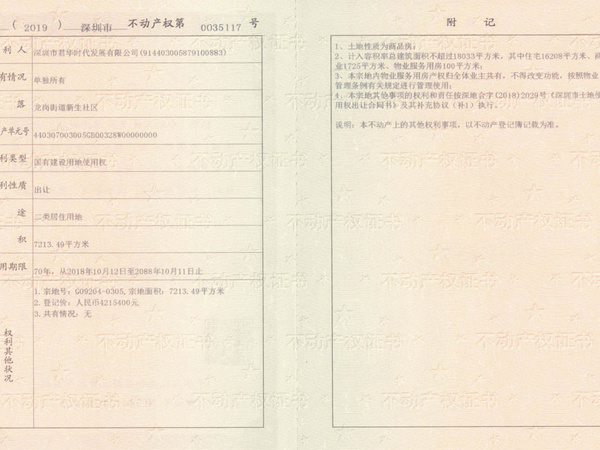 (2019) 深圳市 不动产权第 0035117 号
利人 深圳市君华时代发展有限公司(914403005879100883)
有情况 单独所有
落 龙岗街道新生社区
产单元号 440307003005GB00328W00000000
利类型 国有建设用地使用权
利性质 出让
途 二类居住用地
积 7213.49平方米
用期限 70年,从2018年10月12日至2088年10月11日止
权利其他状况
1.宗地号:G09204-0305,宗地面积:7213.49平方米
2.登记价:人民币4215400元
3.共有情况:无
附记
1、土地性质为商品房;
2、计入容积率总建筑面积不超过18033平方米,其中住宅16208平方米、商
业1725平方米、物业服务用房100平方米;
3、本宗地内物业服务用房产权归全体业主共有,不得改变功能,按照物业
管理条例有关规定进行管理使用;
4、本宗地其他事项的权利和责任按深地合字(2018)2029号《深圳市土地使
用权出让合同书》及其补充协议(补1)执行。
说明:本不动产上的其他权利事项,以不动产登记簿记载为准。
不动产权证书